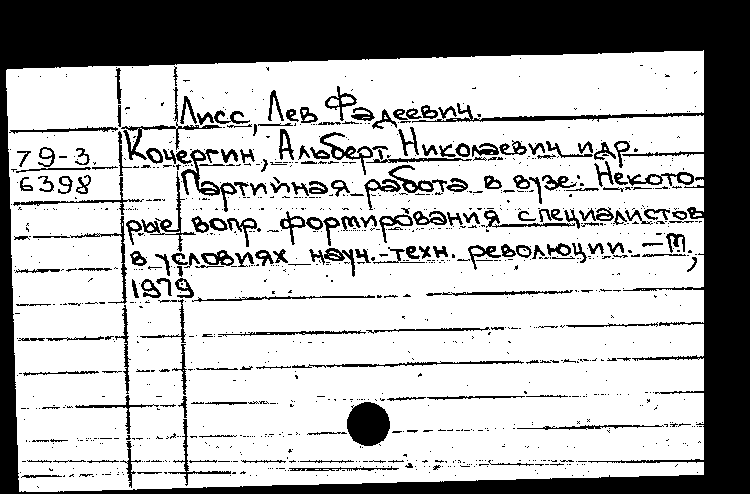 Лисс, Лев Фадеевич.
79-3. Кочергин, Альберт Николаевич и др.
6398 Партийная работа в вузе: Некото-
рые вопр. формирования специалистов
в условиях науч.-техн. революции. – М.,
1979